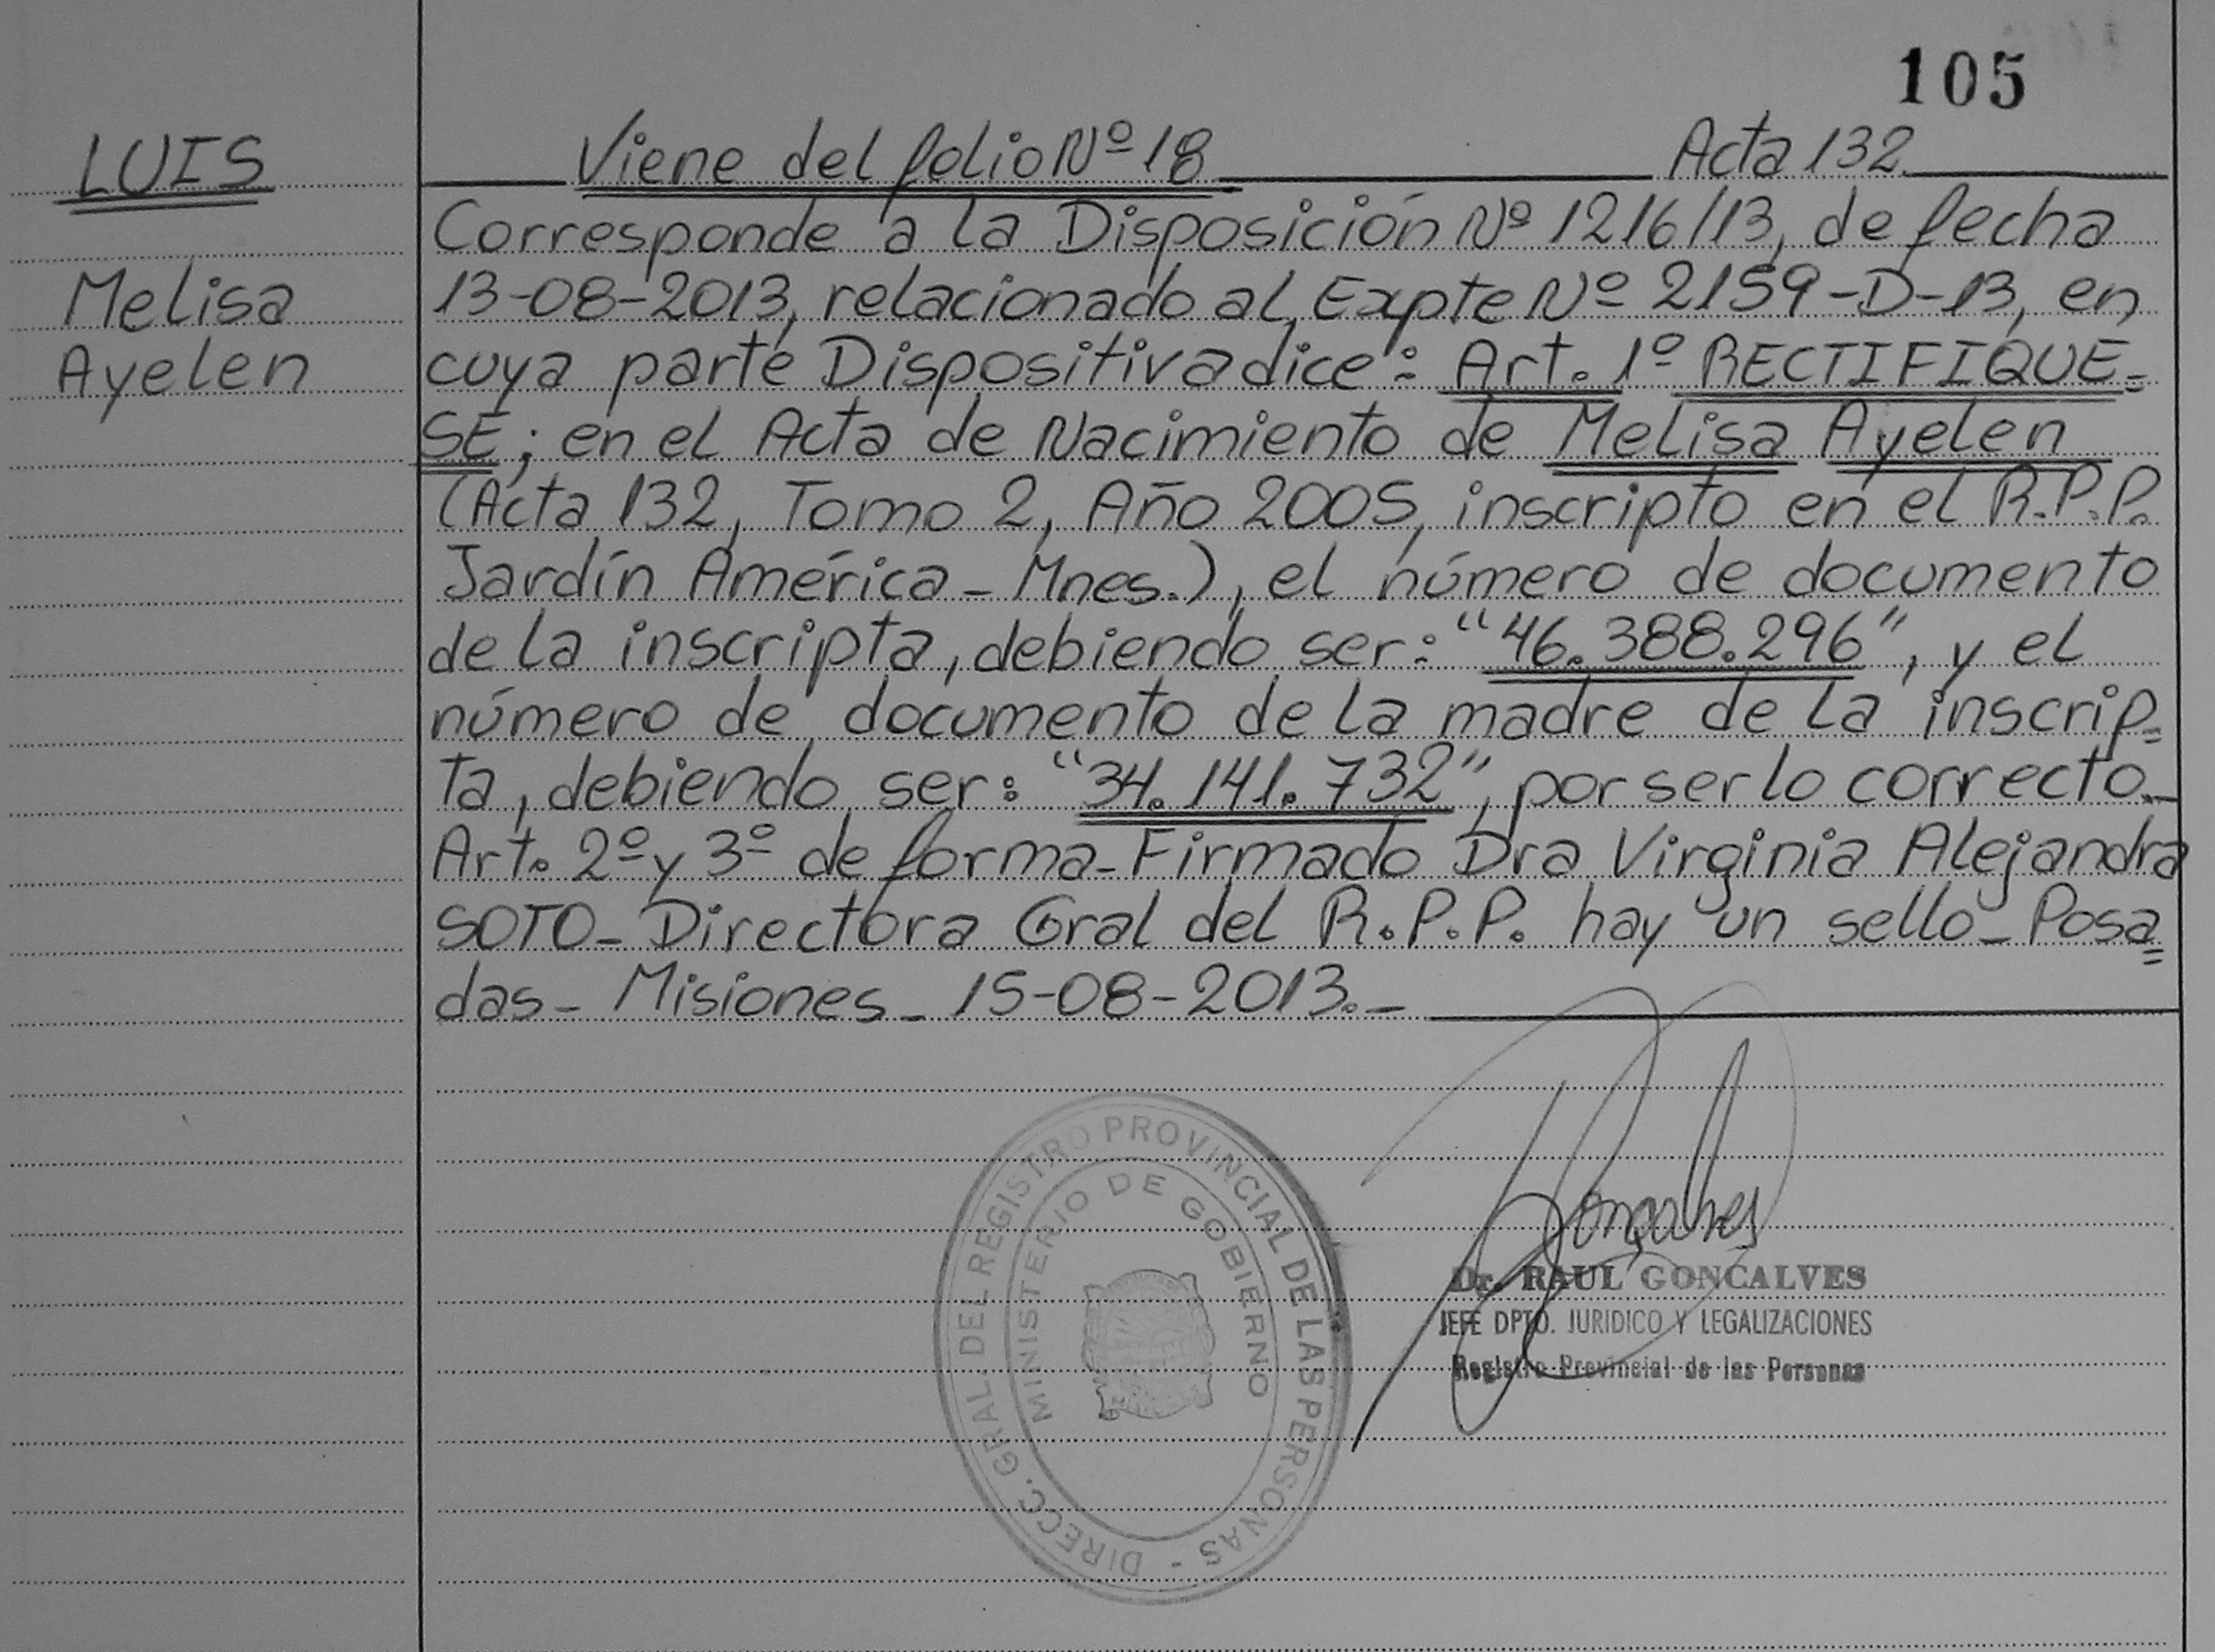 105
LUIS
Melisa
Ayelen
Viene del folio Nº 18 Acta 132
Corresponde a la Disposición Nº 1216/13, de fecha
13-08-2013, relacionado al Expte Nº 2159-D-13, en
cuya parte Dispositiva dice: Art. 1º RECTIFIQUE=
SE; en el Acta de Nacimiento de Melisa Ayelen
(Acta 132, Tomo 2, Año 2005, inscripto en el R.P.P.
Jardín América - Mnes.), el número de documento
de la inscripta, debiendo ser: "46.388.296", y el
número de documento de la madre de la inscrip=
ta, debiendo ser: "34.141.732", por ser lo correcto.-
Art. 2º y 3º de forma - Firmado Dra Virginia Alejandra
SOTO - Directora Gral del R.P.P. hay un sello - Posa=
das - Misiones - 15-08-2013.-
DIRECC. GRAL. DEL REGISTRO PROVINCIAL DE LAS PERSONAS -
MINISTERIO DE GOBIERNO
Gonçalves
Dr. RAUL GONCALVES
JEFE DPTO. JURIDICO Y LEGALIZACIONES
Registro Provincial de las Personas